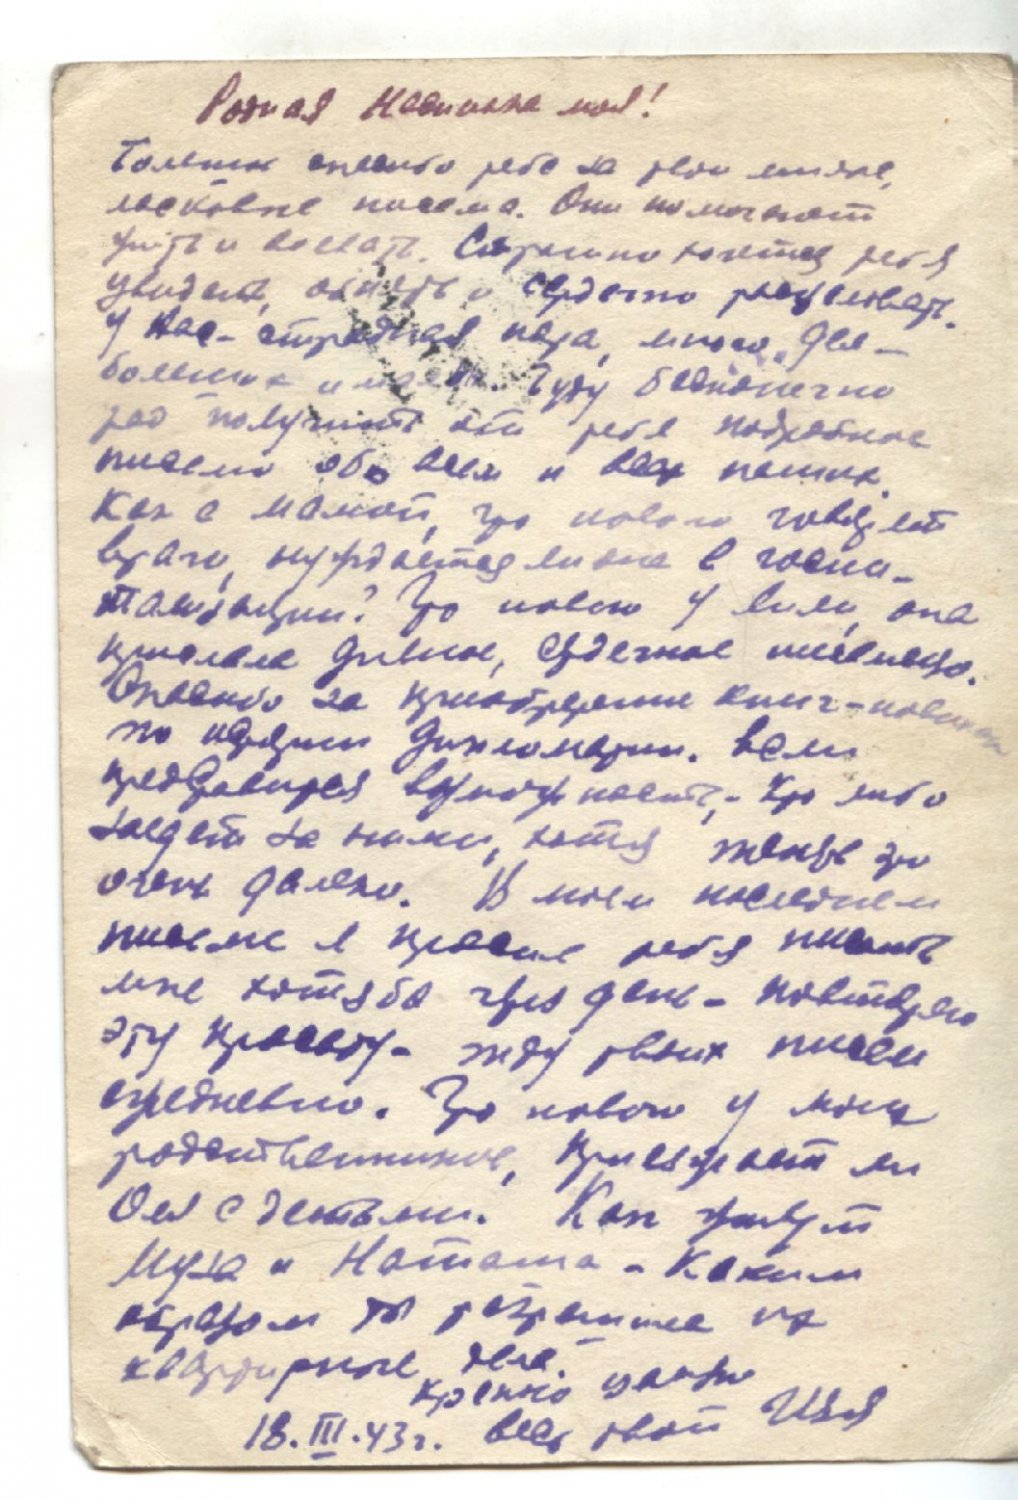 Родная Надюшка моя!
Большое спасибо тебе за твои милые,
ласковые письма. Они помогают
жить и воевать. Страшно хочется тебя
увидеть, обнять и сердечно расцеловать.
У нас - страдная пора, много дел -
больших и малых. Буду бесконечно
рад получить от тебя подробное
письмо обо всем и всех наших.
Как с мамой, что нового говорят
врачи, нуждается ли она в госпи-
тализации? Что нового у Лили, она
прислала дивное, сердечное письмецо.
Спасибо за приобретение книг - новых
по истории дипломатии. Если
представится возможность, - кто либо
заедет за ними, хотя теперь это
очень далеко. В моем последнем
письме я просил тебя писать
мне хотя бы через день - повторяю
эту просьбу - жду твоих писем
ежедневно. Что нового у моих
родственников, приезжает ли
Оля с детьми. Как живут
Муза и Наташа - каким
образом ты разрешила их
квартирные дела.
Крепко целую
18.III.43г. Весь твой Изя